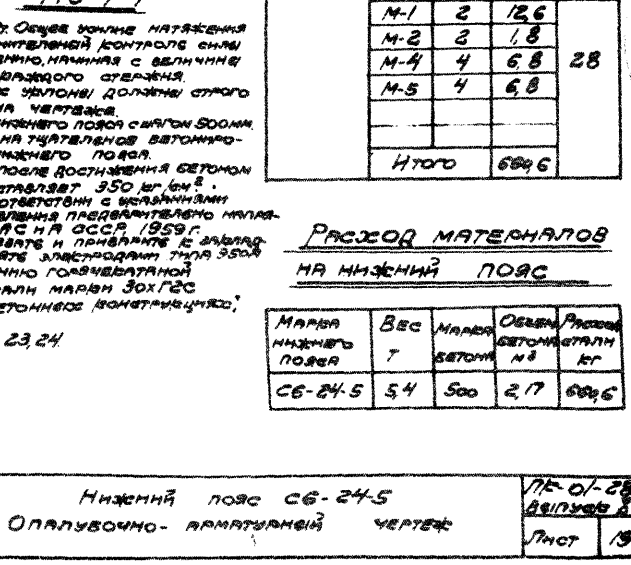 Общее усилие натяжения
контроль силы
начиная с величины
каждого стержня.
уклоны должны строго
чертежа.
нижнего пояса с шагом 500мм.
тщательное
нижнего пояса.
после достижения бетоном
350 кг/см².
соответствии с указаниями
предварительно
АС и А СССР, 1959г.
и приварите к
электродами типа Э50А
горячекатаной
стали марки 30ХГ2С
23,24.
М-1 2 12,6
М-2 2 1,8
М-4 4 6,8 28
М-5 4 6,8
Итого 660,6
Расход материалов
на нижний пояс
Марка нижнего пояса Вес т Марка бетона Объем бетона м³ Расход стали кг
С6-24-5 5,4 500 2,17 660,6
Нижний пояс С6-24-5
Опалубочно-арматурный чертеж
ПК-01-28
Выпуск
Лист 19